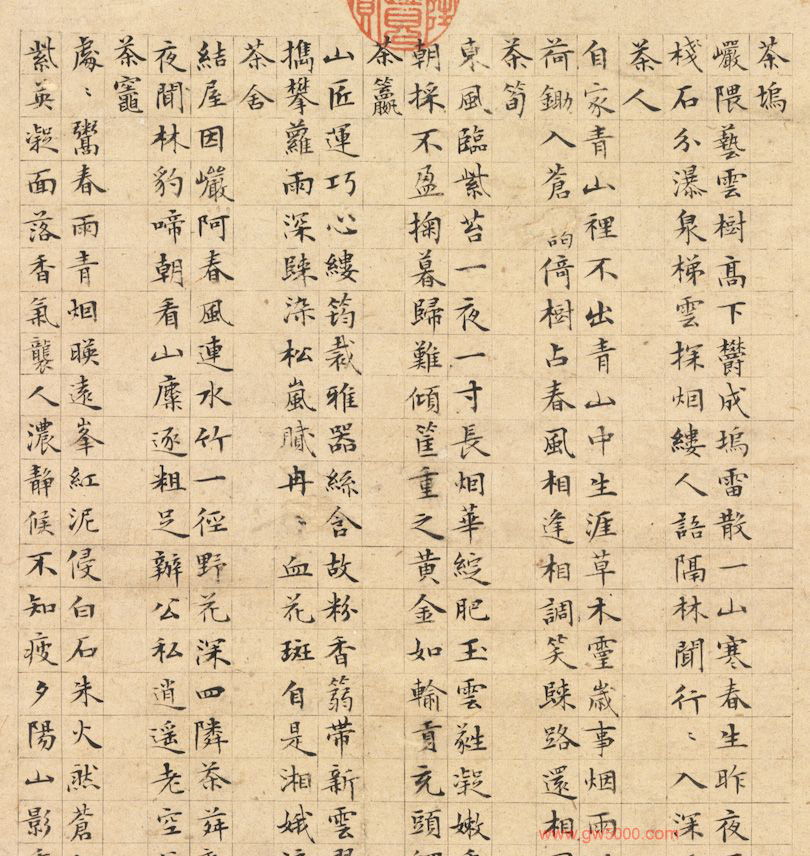 茶塢
巖隈藝雲樹高下欝成塢雷散一山寒春生昨夜
棧石分瀑泉梯雲探烟縷人語隔林聞行〻入深
茶人
自家青山裡不出青山中生涯草木靈歲事烟雨
荷鋤入蒼倚樹占春風相逢相調笑歸路還相
茶筍
東風臨紫苔一夜一寸長烟華綻肥玉雲蕤凝嫩
朝採不盈掬暮歸難傾筐重之黃金如輸貢充頭
茶籯
山匠運巧心縷筠裁雅器絲含故粉香篛帶新雲
攜攀蘿雨深歸染松嵐膩冉〻血花斑自是湘娥
茶舍
結屋因巖阿春風連水竹一徑野花深四隣茶荈
夜聞林豹啼朝看山麋逐粗足辦公私逍遙老空
茶竈
處〻鬻春雨青烟映遠峯紅泥侵白石朱火然蒼
紫英凝面落香氣襲人濃靜候不知疲夕陽山影
www.gw5000.com